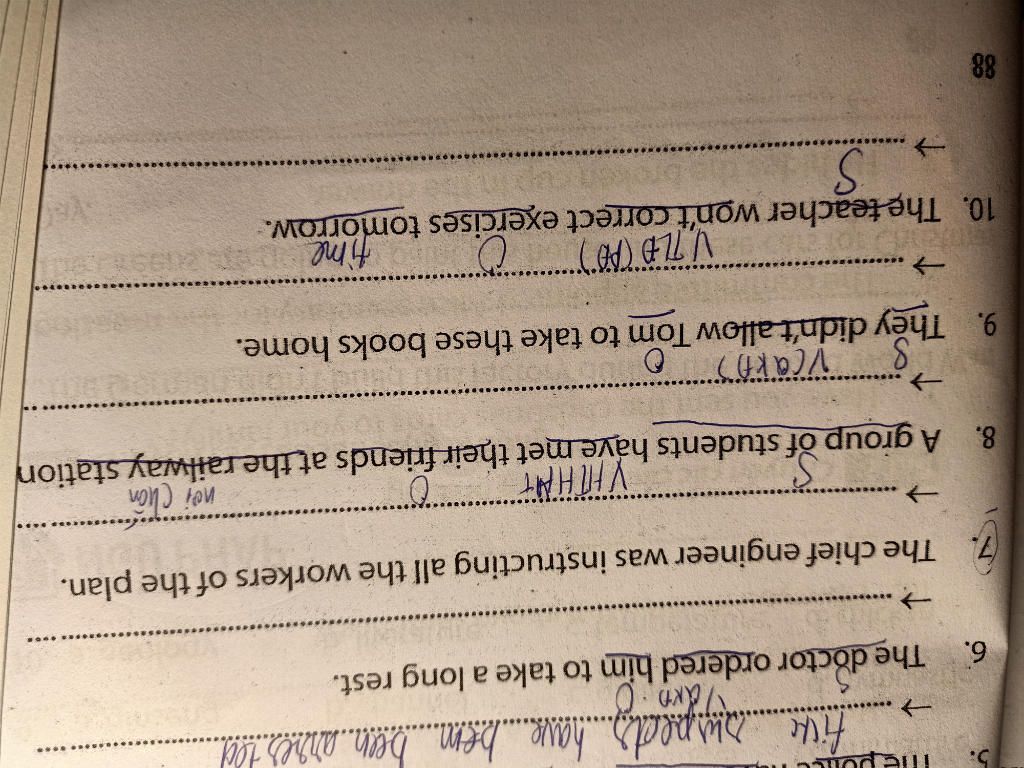 5. The police
five suspects have been been arrested
S V(QKĐ) O
6. The doctor ordered him to take a long rest.
7. The chief engineer was instructing all the workers of the plan.
S VHTHAT O nơi chốn
8. A group of students have met their friends at the railway station
S V(QKĐ) O
9. They didn't allow Tom to take these books home.
VTLĐ (PĐ) O time
10. The teacher won't correct exercises tomorrow.
S
88